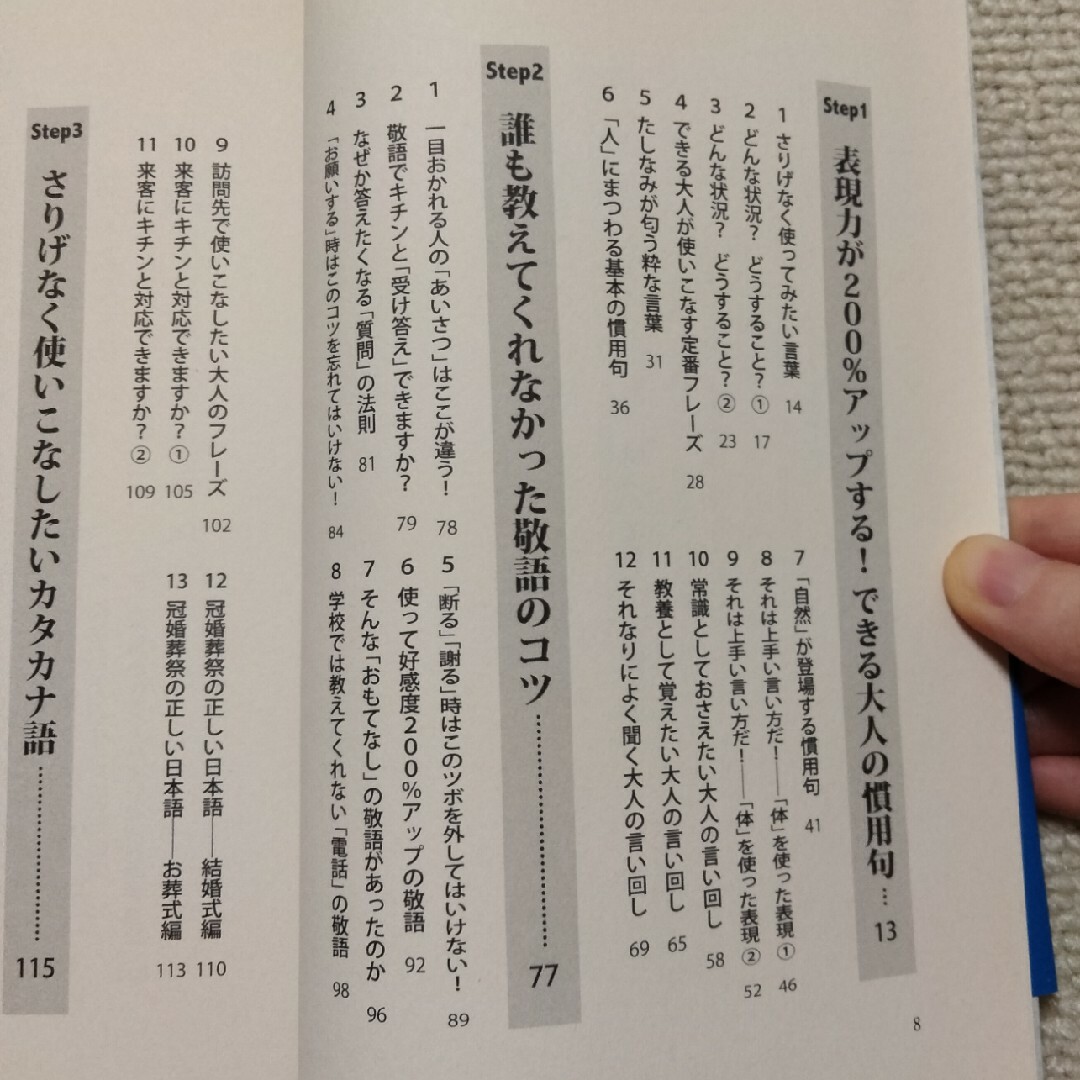 Step1
表現力が200%アップする！できる大人の慣用句… 13
1 さりげなく使ってみたい言葉 14
2 どんな状況？ どうすること？① 17
3 どんな状況？ どうすること？② 23
4 できる大人が使いこなす定番フレーズ 28
5 たしなみが匂う粋な言葉 31
6 「人」にまつわる基本の慣用句 36
7 「自然」が登場する慣用句 41
8 それは上手い言い方だ！──「体」を使った表現① 46
9 それは上手い言い方だ！──「体」を使った表現② 52
10 常識としておさえたい大人の言い回し 58
11 教養として覚えたい大人の言い回し 65
12 それなりによく聞く大人の言い回し 69
Step2
誰も教えてくれなかった敬語のコツ……………… 77
1 一目おかれる人の「あいさつ」はここが違う！ 78
2 敬語でキチンと「受け答え」できますか？ 79
3 なぜか答えたくなる「質問」の法則 81
4 「お願いする」時はこのコツを忘れてはいけない！ 84
5 「断る」「謝る」時はこのツボを外してはいけない！ 89
6 使って好感度200%アップの敬語 92
7 そんな「おもてなし」の敬語があったのか 96
8 学校では教えてくれない「電話」の敬語 98
9 訪問先で使いこなしたい大人のフレーズ 102
10 来客にキチンと対応できますか？① 105
11 来客にキチンと対応できますか？② 109
12 冠婚葬祭の正しい日本語──結婚式編 110
13 冠婚葬祭の正しい日本語──お葬式編 113
Step3
さりげなく使いこなしたいカタカナ語……………… 115
8